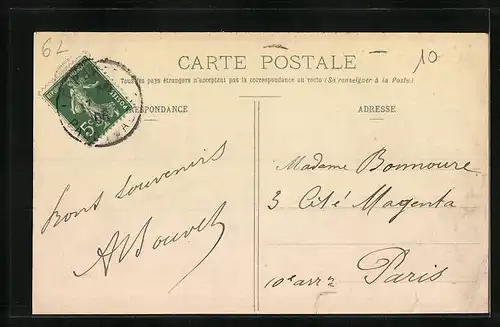 62
10
CARTE POSTALE
Tous les pays étrangers n'acceptent pas la correspondance au recto (Se renseigner à la Poste)
RESPONDANCE
ADRESSE
Bons souvenirs
ABouvet
Madame Bonnoure
3 Cité Magenta
10e arrt
Paris